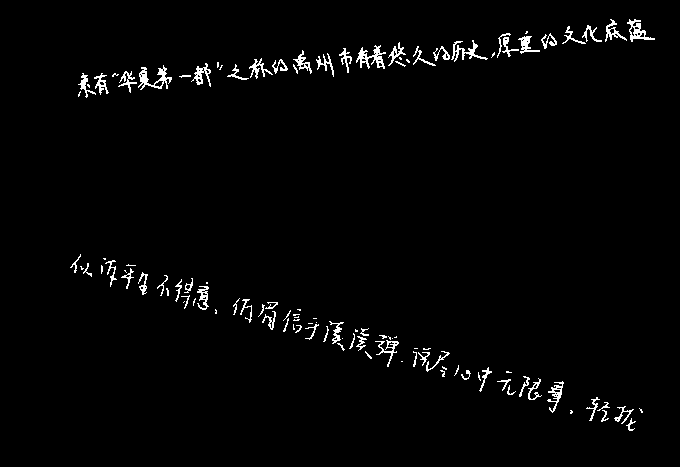 素有“华夏第一都”之称的禹州市有着悠久的历史,厚重的文化底蕴
似诉平生不得意、低眉信手续续弹.说尽心中无限事、轻拢